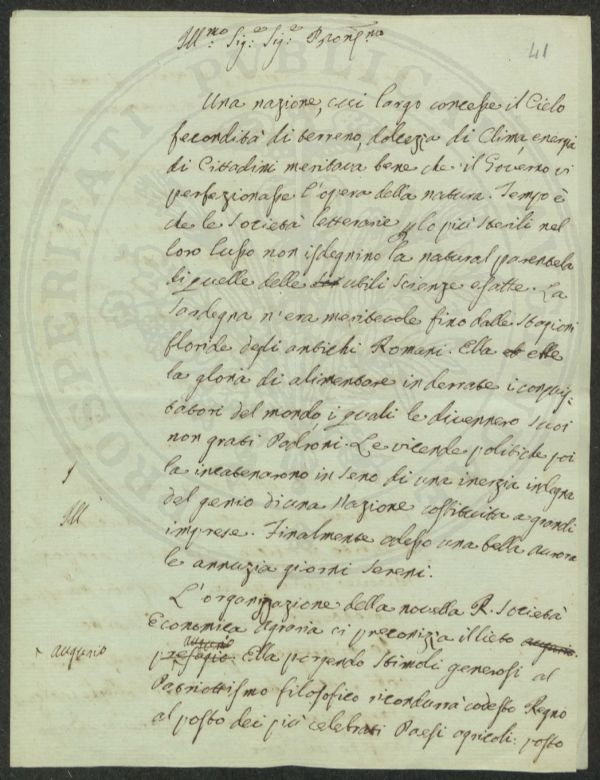 Ill.mo Sig.e Sig.e Pron.mo
41
Una nazione, cui largo concesse il Cielo
fecondità di terreno, dolcezza di Clima, energia
di Cittadini meritava bene che il Governo vi
perfezionasse l'opera della natura. Tempo è
che le Società letterarie p lo più sterili nel
loro lusso non isdegnino la natural parentela
di quelle delle utili Scienze esatte. La
Sardegna n'era meritevole fino dalle Stagioni
floride degli antichi Romani. Ella ebbe
la gloria di alimentare in derrate i conquis-
tatori del mondo, i quali le divennero Suoi
non grati Padroni. Le vicende politiche poi
la incatenarono in Seno di una inerzia indegna
del genio di una Nazione costituita a grandi
imprese. Finalmente adesso una bella aurora
le annuzia giorni Sereni.
Ill
L'organizzazione della novella R. Società
Economica Agraria ci preconizza il lieto augurio
augurio
presagio. Ella porgendo Stimoli generosi al
augurio
Patriottismo filosofico ricondurrà codesto Regno
al posto dei più celebrati Paesi agricoli: posto
PUBLICAE
PROSPERITATI